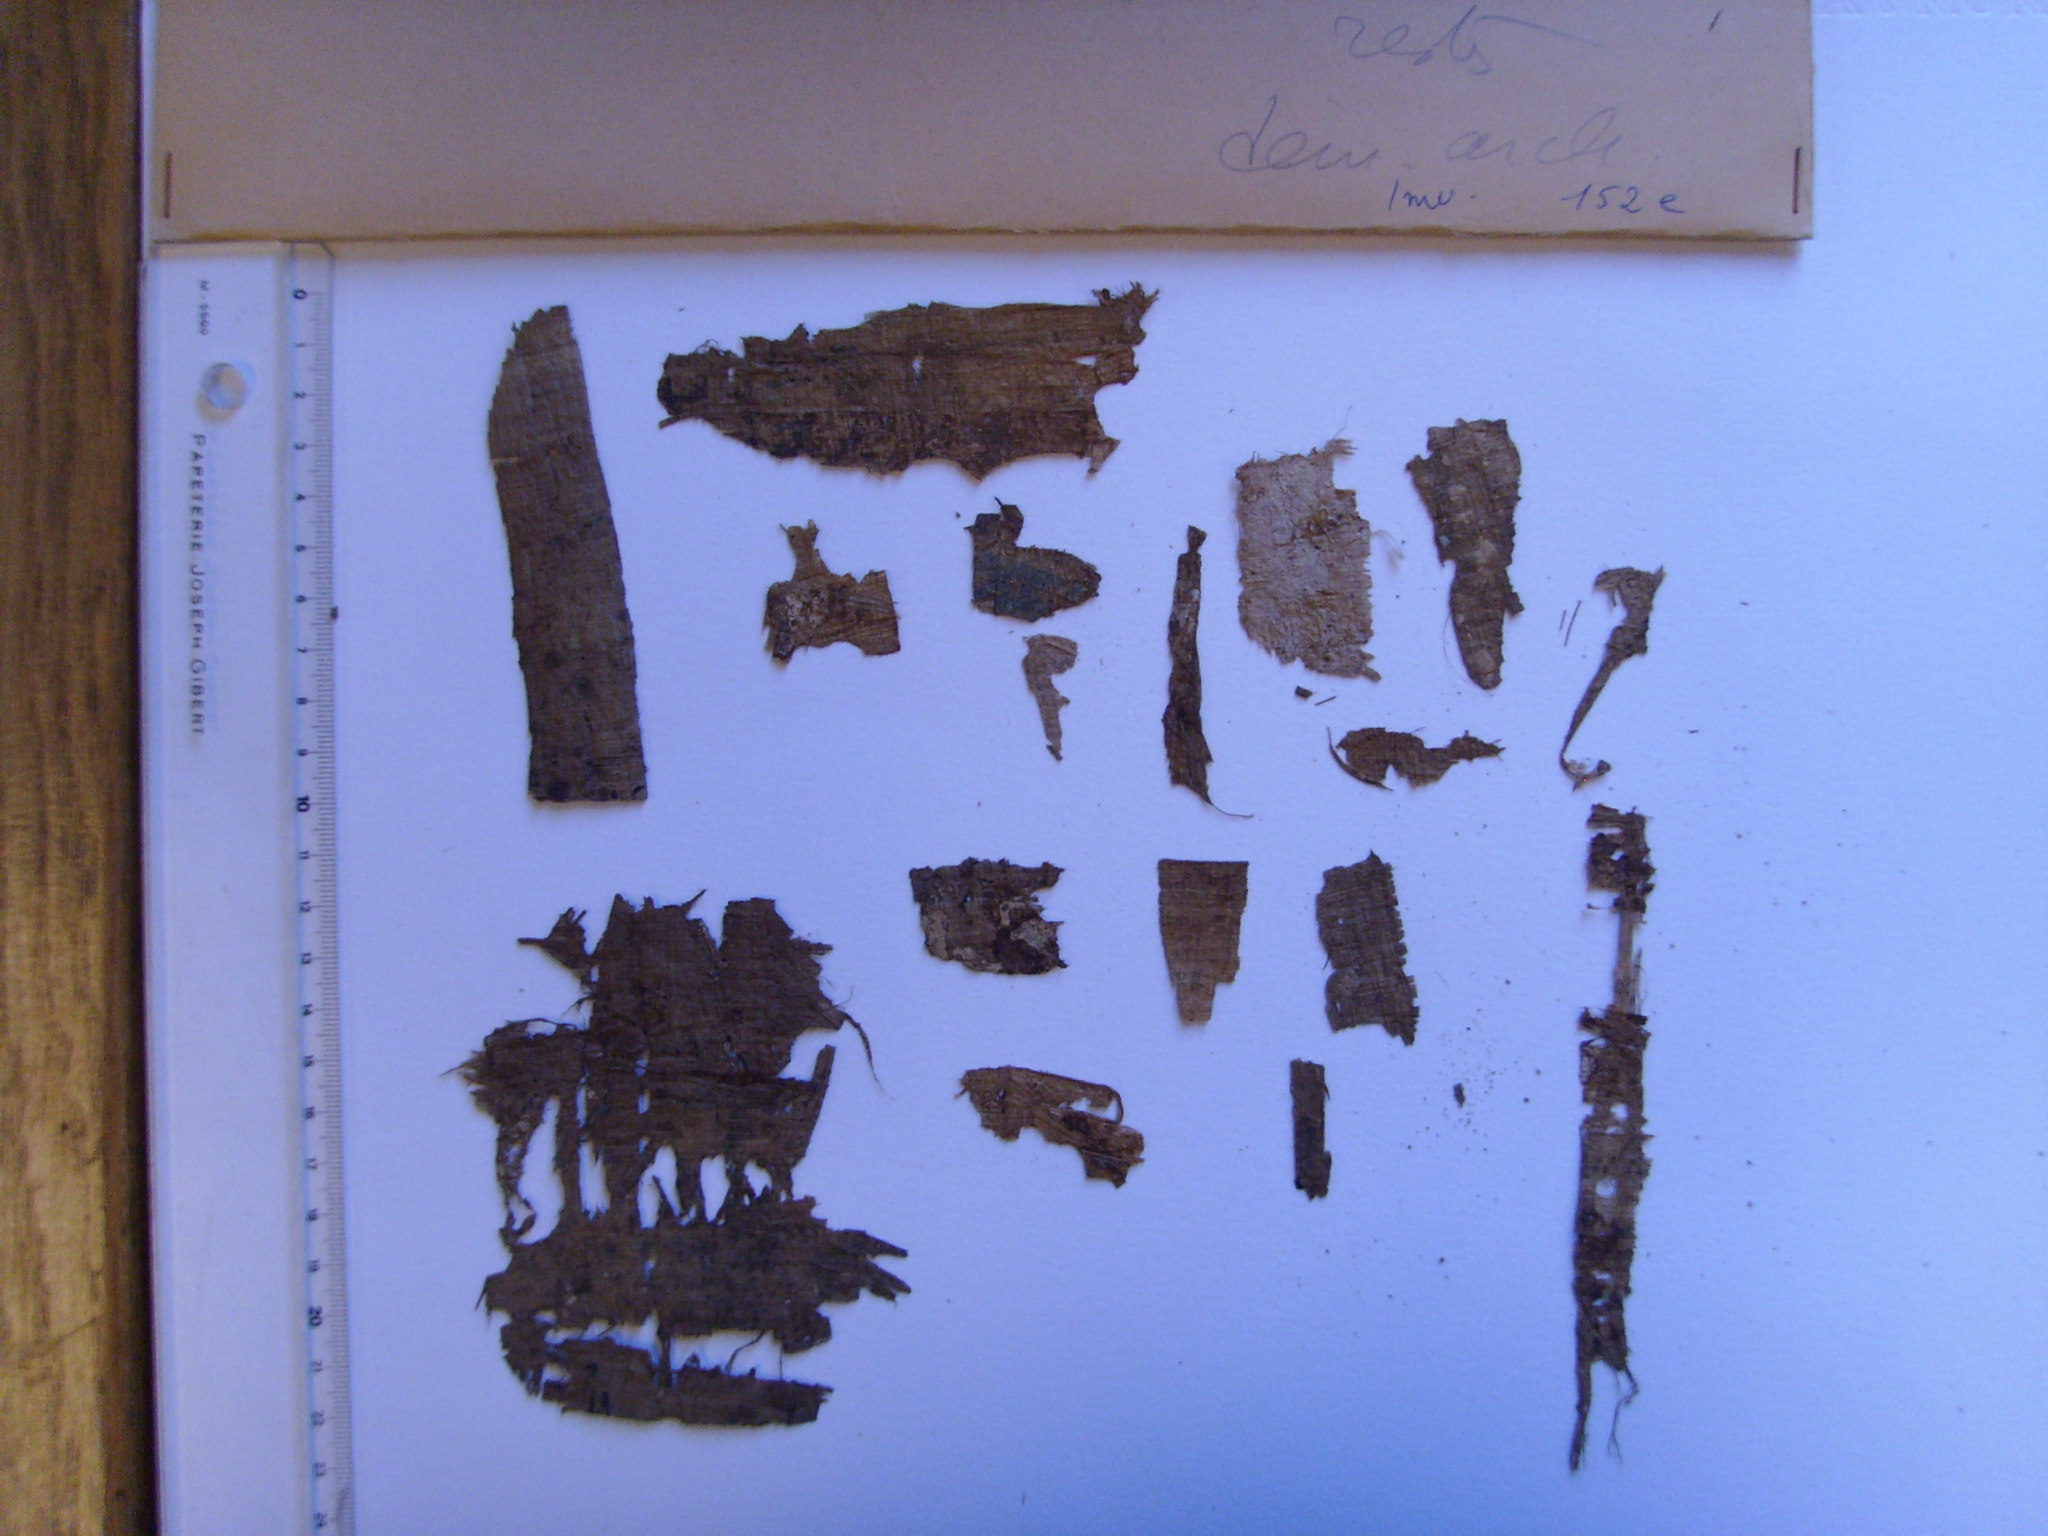 restes
dém. arch.
Inv. 152 e
M-5600
PAPETERIE JOSEPH GIBERT
0
1
2
3
4
5
6
7
8
9
10
11
12
13
14
15
16
17
18
19
20
21
22
23
24